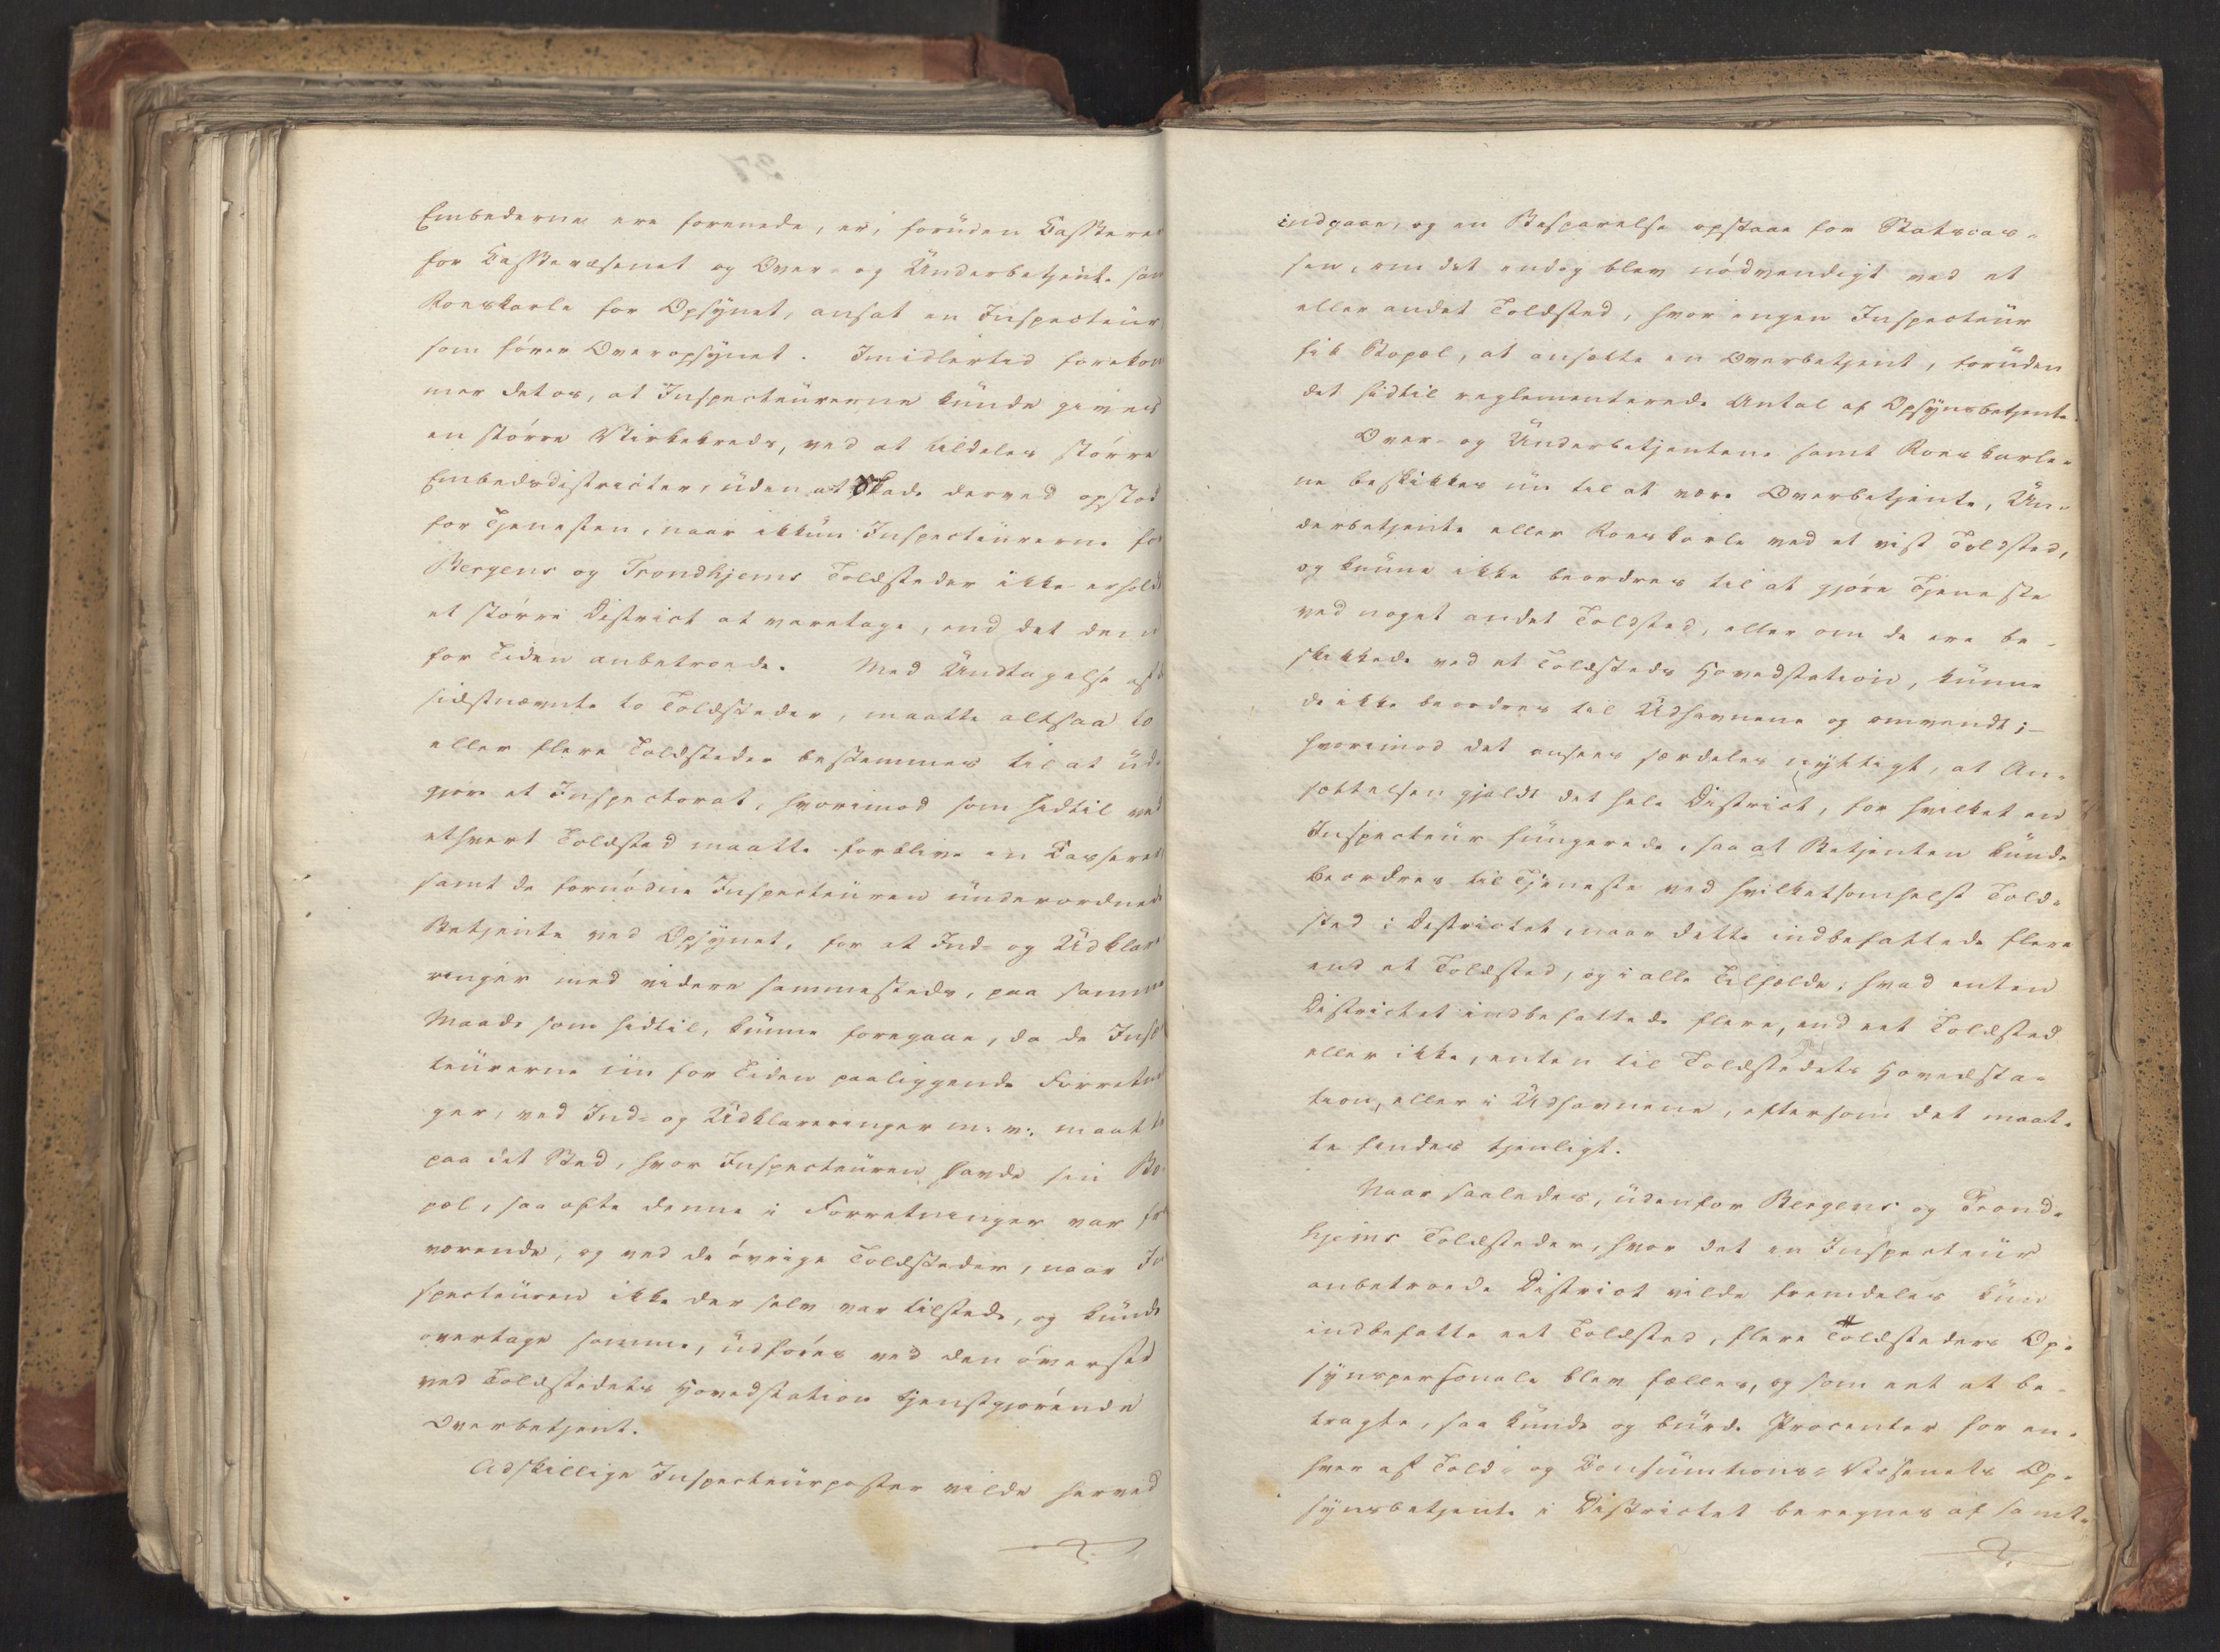 Embederne ere forenede, er, foruden Casserer
for Cassevæsenet og Over- og Underbetjente samt
Roerskarle for Opsynet, ansat en Inspecteur
som fører Overopsynet. Imidlertid forekom
mer det os, at Inspecteurerne kunde gives
en større Virkekreds, ved at tildeles større
Embedsdistricter, uden at Skade derved opstod
for Tjenesten, naar ikkun Inspecteurerne for
Bergens og Trondhjems Toldsteder ikke erholdt
et større District at varetage, end det dem
for Tiden anbetroede. Med Undtagelse af de
sidstnævnte to Toldsteder, maatte altsaa to
eller flere Toldsteder bestemmes til at ud-
gjøre et Inspectorat, hvorimod som hidtil ved
ethvert Toldsted maatte forblive en Casserer
samt de fornødne Inspecteuren underordnede
Betjente ved Opsynet, for at Ind- og Udklare
ringer med videre sammesteds, paa samme
Maade som hidtil, kunne foregaae, da de Inspec
teurerne nu for Tiden paaliggende Forretnin
ger, ved Ind- og Udklareringer m: v:, maatte
paa det Sted, hvor Inspecteuren havde sin Bo-
pæl, saa ofte denne i Forretninger var fra
værende, og ved de øvrige Toldsteder, naar In
specteuren ikke der selv var tilstede, og kunde
overtage samme, udføres ved den øverste
ved Toldstedets Hovedstation tjenstgjørende
Overbetjent.
Adskillige Inspecteurposter vilde herved
indgaae, og en Besparelse opstaae for Statscas-
sen, om det endog blev nødvendigt ved et
eller andet Toldsted, hvor ingen Inspecteur
fik Bopæl, at ansætte en Overbetjent, foruden
det hidtil reglementerede Antal af Opsynsbetjente.
Over- og Underbetjentene samt Roerskarle-
ne beskikkes nu til at være Overbetjente, Un-
derbetjente eller Roerskarle ved et vist Toldsted,
og kunne ikke beordres til at gjøre Tjeneste
ved noget andet Toldsted, eller om de ere be-
skikkede ved et Toldsteds Hovedstation, kunne
de ikke beordres til Udhavnene og omvendt; -
hvorimod det ansees særdeles nyttigt, at An-
sættelsen gjældt det hele District, for hvilket en
Inspecteur fungerede, saa at Betjenten kunde
beordres til Tjeneste ved hvilketsomhelst Told-
sted i Districtet, naar dette indbefattede flere
end et Toldsted, og i alle Tilfælde, hvad enten
Districtet indbefattede flere, end eet Toldsted
eller ikke, enten til Toldstedets Hovedsta-
tion, eller i Udhavnene, eftersom det maat-
te findes tjenligt.
Naar saaledes, udenfor Bergens og Trond-
hjems Toldsteder, hvor det en Inspecteur
anbetroede District vilde fremdeles kun
indbefatte eet Toldsted, flere Toldsteders Op-
synspersonale blev fælles, og som eet at be-
tragte, saa kunde og burde Procenter for en-
hver af Told- og Consumtions-Væsenets Op-
synsbetjente i Districtet beregnes af samt-